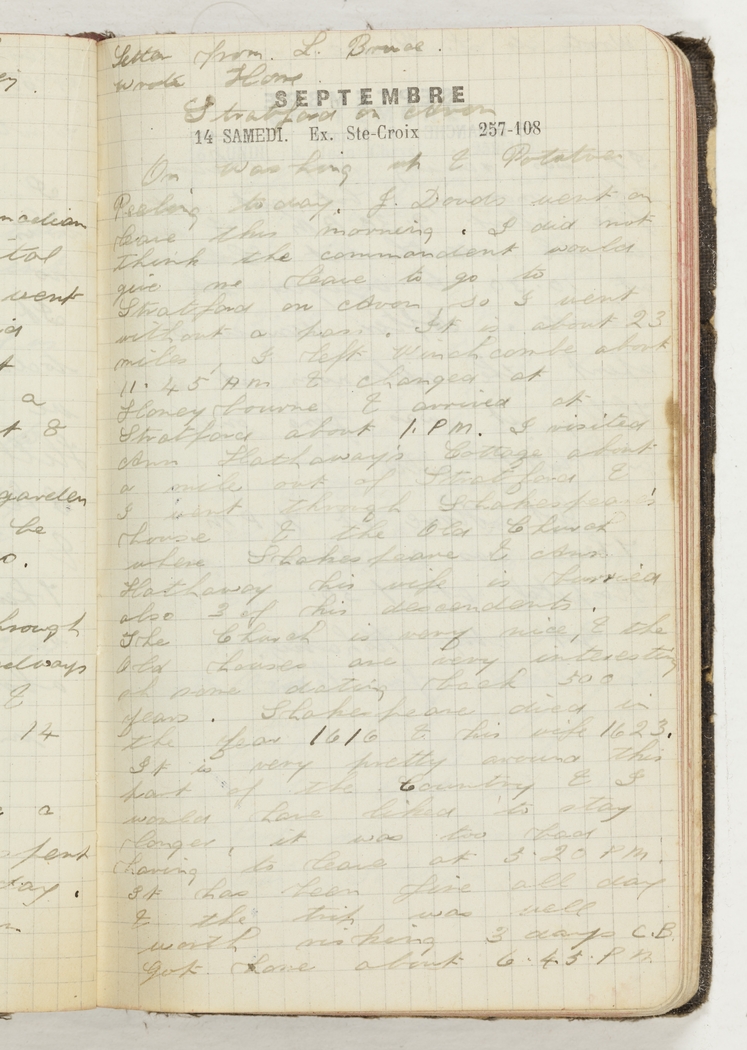 ey.
nadian
tal
went
a
t 8
garden
be
o.
hrough
always
&
14
a
spent
day.
Letter from L. Bruce.
Wrote Home
SEPTEMBRE
Stratford on Avon
14 SAMEDI. Ex. Ste-Croix 257-108
On washing up & Potatoe
Peeling today. J. Dowds went on
leave this morning. I did not
think the commandent would
give me leave to go to
Stratford on Avon so I went
without a pass. It is about 23
miles, I left Winchcombe about
11.45 AM & changed at
Honeybourne & arrived at
Stratford about 1.PM. I visited
Ann Hathaways Cottage about
a mile out of Stratford &
I went through Shakespeare's
house & the Old Church
where Shakespeare & Ann
Hathaway his wife is burried
also 3 of his descendents.
The Church is very nice, & the
Old houses are very interesting
of some dating back 500
years. Shakespeare died in
the year 1616 & his wife 1623.
It is very pretty around this
part of the Country & I
would have liked to stay
longer, it was too bad
having to leave at 5.20 PM.
It has been fine all day
& the trip was well
worth risking 3 days C.B.
Got home about 6.45.PM.